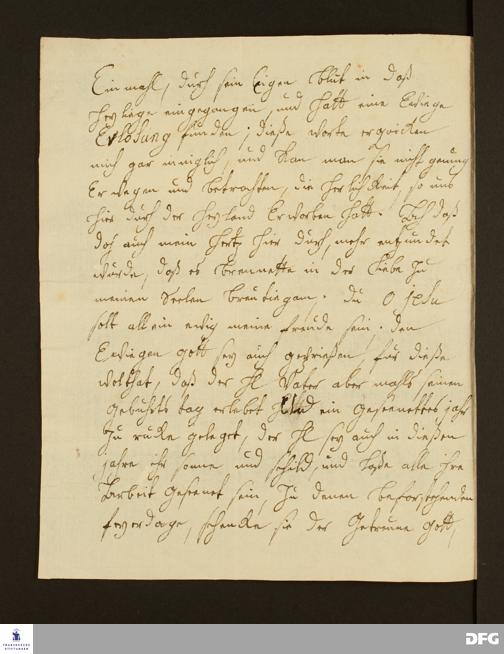 Ein mahl, durch sein Eigen blut in daß
heylige eingegangen, und hatt eine Ewige
Erlösung funden; dieße worte erqvicken
mich gar inniglich, und kan man sie nicht genung
Erwegen und betrachten, die herlichkeit, so uns
hier durch der heyland Erworben hatt. Ach daß
doch auch mein hertz hier durch, mehr entzündet
würde, daß es brennette in der Liebe zu
meinen Seelen breutiegam. du O Jesu
solt allein ewig meine freude sein. den
Ewiegen gott sey auch geprießen, für dieße
wolthat, daß der H Vater aber mahls, seinen
gebuhrts tag erlebet und ein geseenettes jahr
zu rücke geleget, der H sey auch in dießen
jahre ihr sonne und schild, und laße alle ihre
Arbeit geseenet sein, zu denen beforstehenden
feyerdage, schencke sie der Getreue gott,
FRANCKESCHE
STIFTUNGEN
DFG